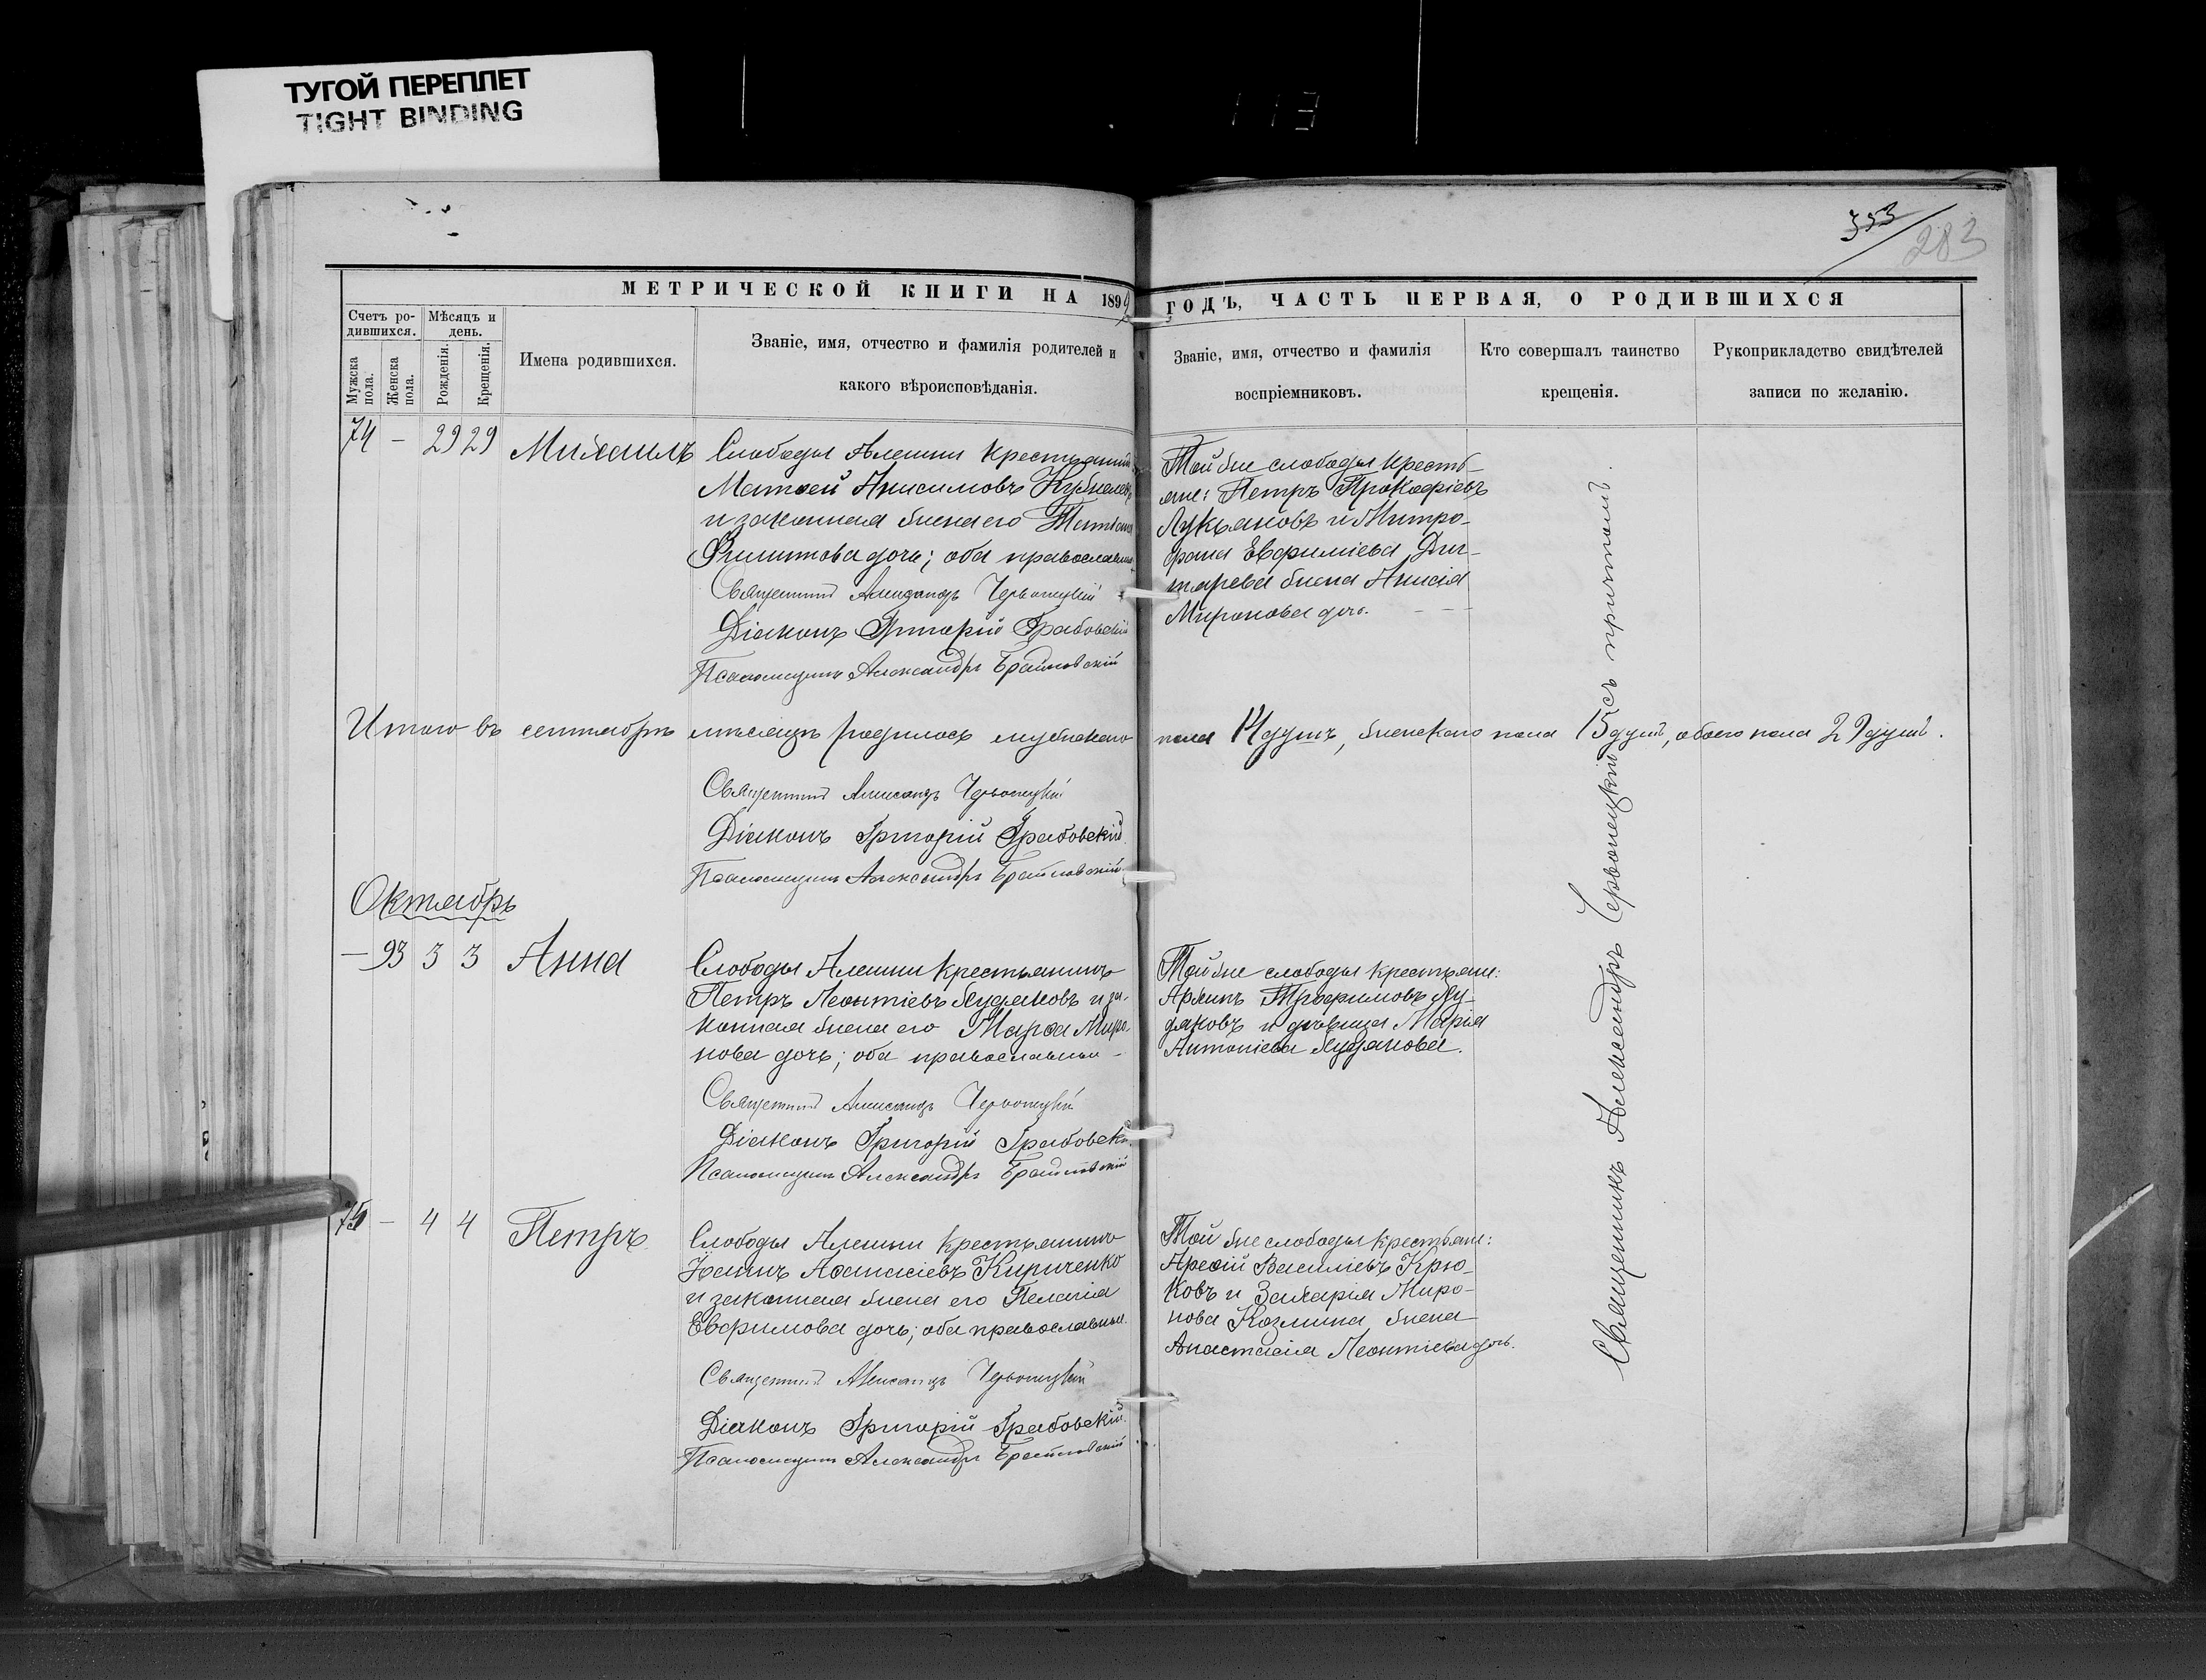 ТУГОЙ ПЕРЕПЛЕТ
TIGHT BINDING
113
353
283
МЕТРИЧЕСКОЙ КНИГИ НА 1894 ГОДЪ, ЧАСТЬ ПЕРВАЯ, О РОДИВШИХСЯ
Счетъ ро-
дившихся.
Мѣсяцъ и
день.
Мужска
пола.
Женска
пола.
Рожденія.
Крещенія.
Имена родившихся.
Званіе, имя, отчество и фамилія родителей и
какого вѣроисповѣданія.
Званіе, имя, отчество и фамилія
воспріемниковъ.
Кто совершалъ таинство
крещенія.
Рукоприкладство свидѣтелей
записи по желанію.
74 - 29 29 Михаилъ
Слободы Алешни крестьянинъ
Матѳей Анисимовъ
и законная жена его Татіана
Филиппова дочь; оба православные
Священникъ Александръ Червонецкій
Діаконъ Григорій Грабовскій
Псаломщикъ Александръ Браиловскій
Той же слободы кресть-
яне: Петръ Прокофіевъ
Лукьяновъ и Митро-
фана Евфиміева Дег-
тярева жена Анисія
Миронова дочь.
Итого въ сентябрѣ мѣсяцѣ родилось мужскаго пола 14 душъ, женскаго пола 15 душъ, обоего пола 29 душъ.
Священникъ Александръ Червонецкій
Діаконъ Григорій Грабовскій
Псаломщикъ Александръ Браиловскій
Октябрь
- 93 3 3 Анна
Слободы Алешни крестьянинъ
Петръ Леонтіевъ Худяковъ и за-
конная жена его Марѳа Миро-
нова дочь; оба православные
Священникъ Александръ Червонецкій
Діаконъ Григорій Грабовскій
Псаломщикъ Александръ Браиловскій
Той же слободы крестьяне:
Архипъ Трофимовъ Ху-
дяковъ и дѣвица Марія
Антоніева Худякова.
75 - 4 4 Петръ
Слободы Алешни крестьянинъ
Іоаннъ Аѳанасіевъ Кириченко
и законная жена его Пелагія
Евфимова дочь; оба православные.
Священникъ Александръ Червонецкій
Діаконъ Григорій Грабовскій
Псаломщикъ Александръ Браиловскій
Той же слободы крестьяне:
Василіевъ Крю-
ковъ и Захарія Миро-
нова Козмина жена
Анастасія Леонтіева дочь.
Священникъ Александръ Червонецкій съ причтомъ.